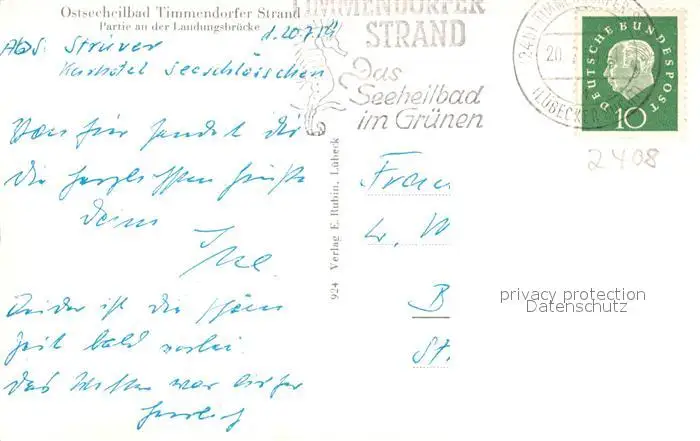 Ostseeheilbad Timmendorfer Strand
Partie an der Landungsbrücke
d. 20.7.
Abs. Struver
Kurhotel Seeschlösschen
Von hier sendet dir
die herzlichsten Grüße
deine
Ilse
Leider ist die schöne
Zeit bald vorbei.
Das Wetter war bisher
herrlich
924 Verlag E. Rubin, Lübeck
TIMMENDORFER
STRAND
Das
Seeheilbad
im Grünen
TIMMENDORFER
20.
LÜBECKER
DEUTSCHE BUNDESPOST
10
2408
Frau
W
B
St.
privacy protection
Datenschutz